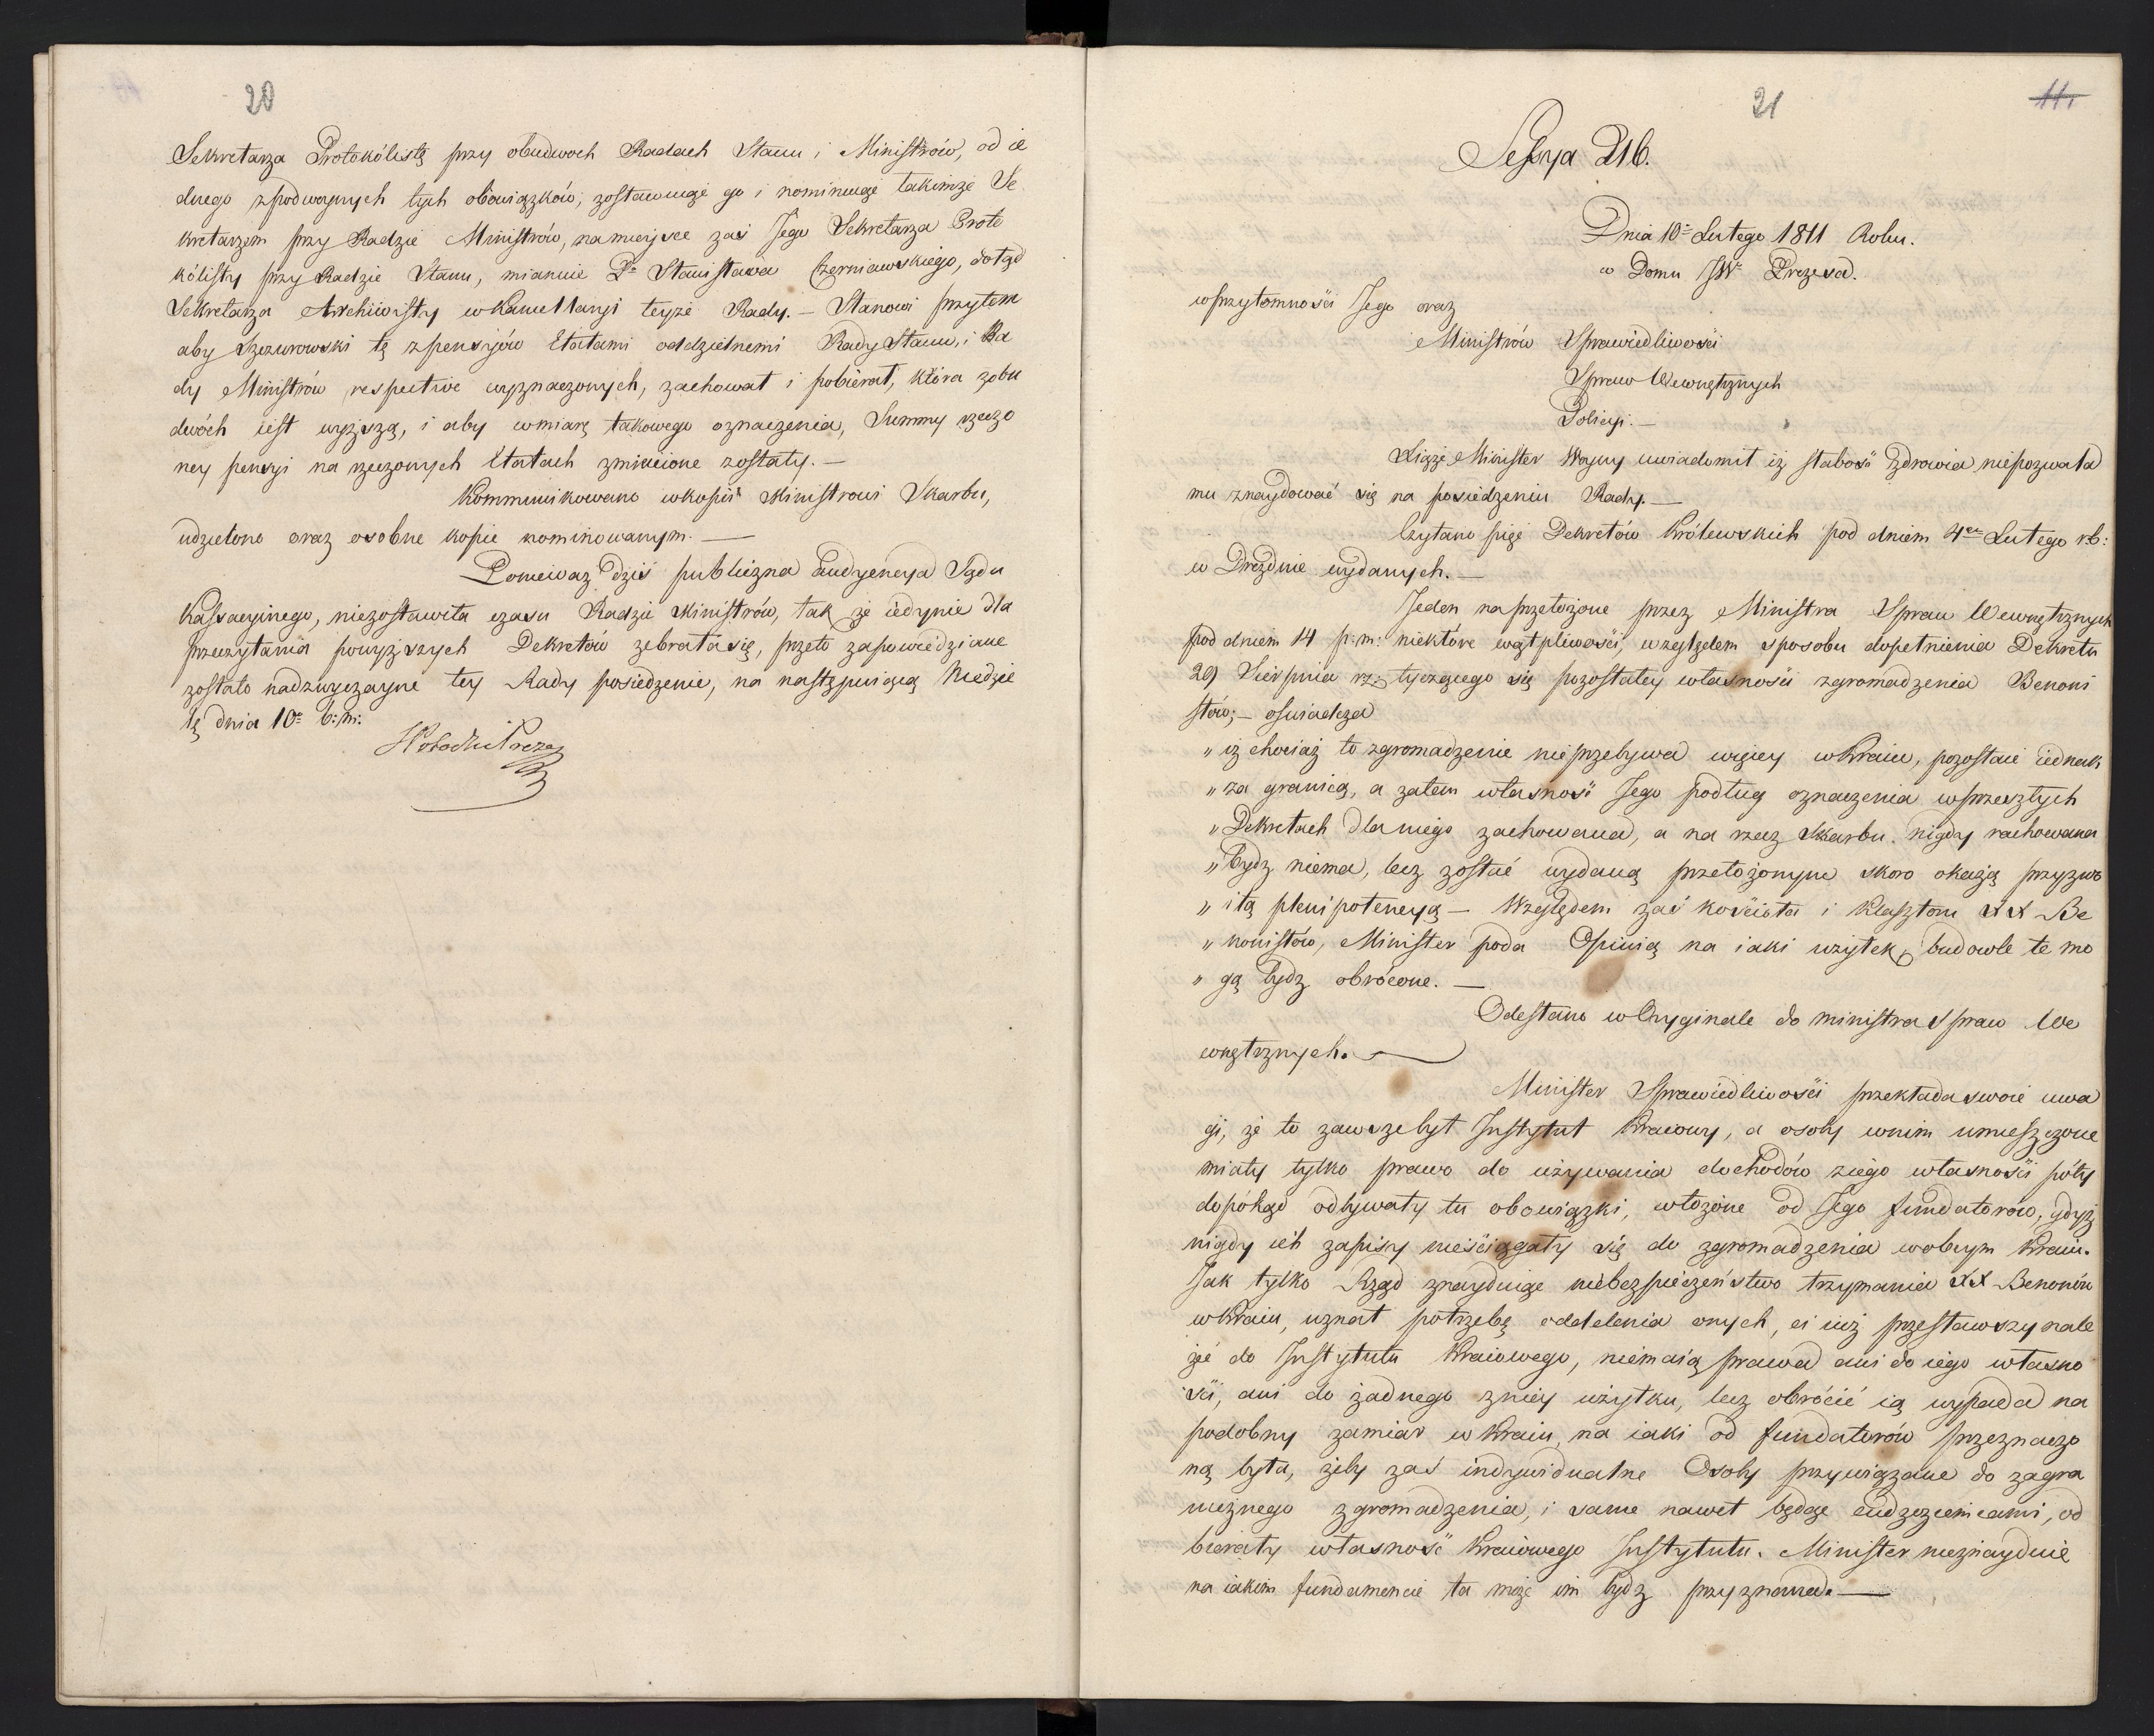 20
Sekretarza Protokólistę przy obudwoch Radach Stanu i Ministrów, od ie
dnego zpodwoynych tych obowiązków, zostawuiąc go i nominuiąc takimże Se
kretarzem przy Radzie Ministrów, na mieysce zaś Jego Sekretarza Proto
kólisty przy Radzie Stanu, mianuie Pa Stanisława Czerniawskiego, dotąd
Sekretarza Archiwisty w Kancellaryi teyże Rady. — Stanowi przytem
aby Szczurowski tę zpensyiów Etatami oddzielnemi Rady Stanu, i Ra
dy Ministrów respective wyznaczonych, zachował i pobierał, która zobu
dwóch iest wyższą, i aby wmiarę takowego oznaczenia, Summy rzeczo
ney pensyi na rzeczonych Etatach zmienione zostały. —
Kommunikowano wkopii Ministrowi Skarbu,
udzielono oraz osobne kopie nominowanym. —
Ponieważ dziś publiczna Audyencya Sądu
Kassacyinego, niezostawiła czasu Radzie Ministrów, tak że iedynie dla
przeczytania powyższych Dekretów zebrała się, przeto zapowiedziane
zostało nadzwyczayne tey Rady posiedzenie, na następuiącą Niedzie
lę dnia 10o b: m:
21
11.
Sessya 216.
Dnia 10o Lutego 1811 Roku.
w Domu JWo Prezesa.
wprzytomności Jego oraz
Ministrów Sprawiedliwości
Spraw Wewnętrznych
Policyi. —
Xiąże Minister Woyny uwiadomił iż słabość zdrowia niepozwala
mu znaydować się na posiedzeniu Rady. —
Czytano pięć Dekretów Królewskich pod dniem 4em Lutego r.b:
w Dreznie wydanych. —
Jeden na przełożone przez Ministra Spraw Wewnętrznych
pod dniem 14 p: m: niektóre wątpliwości, względem sposobu dopełnienia Dekretu
29 Sierpnia rz: tyczącego się pozostałey własności zgromadzenia Benoni
stów; — oświadcza
„ iż chociaż to zgromadzenie nieprzebywa więcey w Kraiu, pozostaie iednak
„ za granicą, a zatem własność Jego podług oznaczenia wprzeszłych
„ Dekretach dla niego zachowana, a na rzecz Skarbu nigdy rachowana
„ bydz niema, lecz zostać wydaną przełożonym skoro okażą przyzwo
„ itą plenipotencyą — Względem zaś kościoła i Klasztoru XX Be
„ nonistów, Minister poda Opinią na iaki użytek budowle te mo
„ gą bydz obrócone. —
Odesłano w Oryginale do ministra Spraw We
wnętrznych.
Minister Sprawiedliwości przekłada swoie uwa
gi, że to zawsze był Instytut Kraiowy, a osoby wnim umieszczone
miały tylko prawo do używania dochodów ziego własności póty
dopókąd odbywały tu obowiązki, włożone od Jego fundatorów, gdyż
nigdy ich zapisy nieściągały się do zgromadzenia wobcym Kraiu.
Jak tylko Rząd znayduiąc niebezpieczeństwo trzymania XX Benonów
w Kraiu, uznał potrzebę oddalenia onych, ci iuż przestawszy nale
żeć do Instytutu Kraiowego, niemaią prawa ani do iego własno
ści, ani do żadnego zniey użytku, lecz obrócić ią wypada na
podobny zamiar w Kraiu, na iaki od fundatorów przeznaczo
ną była, żeby zaś indywidualne Osoby przywiązane do zagra
nicznego zgromadzenia, i same nawet będąc cudzoziemcami, od
bierały własność Kraiowego Instytutu. Minister nieznayduie
na iakim fundamencie ta może im bydz przyznana. —